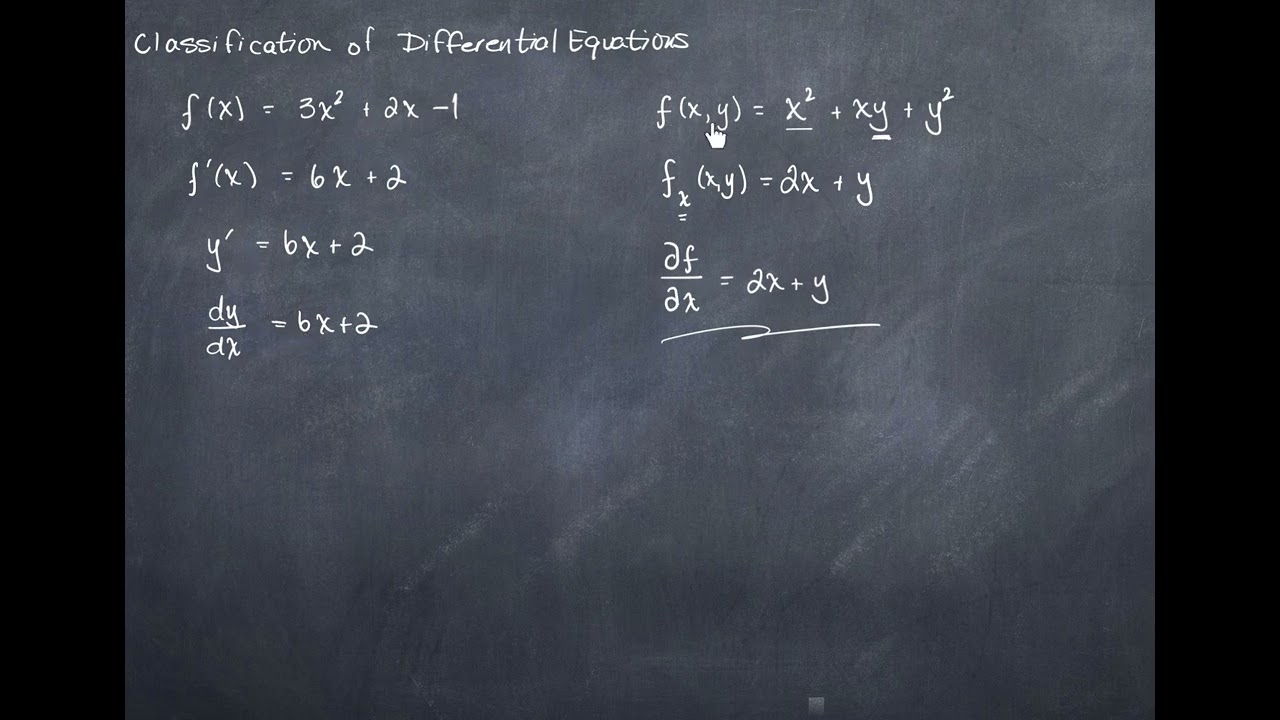 Classification of Differential Equations
f(x) = 3x² + 2x - 1
f'(x) = 6x + 2
y' = 6x + 2
dy/dx = 6x + 2
f(x,y) = x² + xy + y²
fₓ(x,y) = 2x + y
∂f/∂x = 2x + y